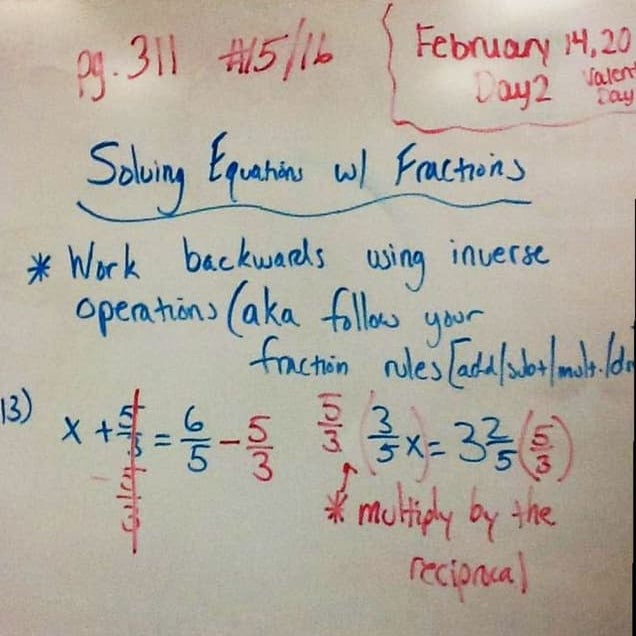 pg. 311 #15/16
February 14, 20
Day 2 Valen
Day
Solving Equations w/ Fractions
* Work backwards using inverse
operations (aka follow your
fraction rules [add/subt/mult./di
13) x + 5/3 = 6/5 - 5/3
- 5/3
5/3 (3/5 x) = 3 2/5 (5/3)
* multiply by the
reciprocal